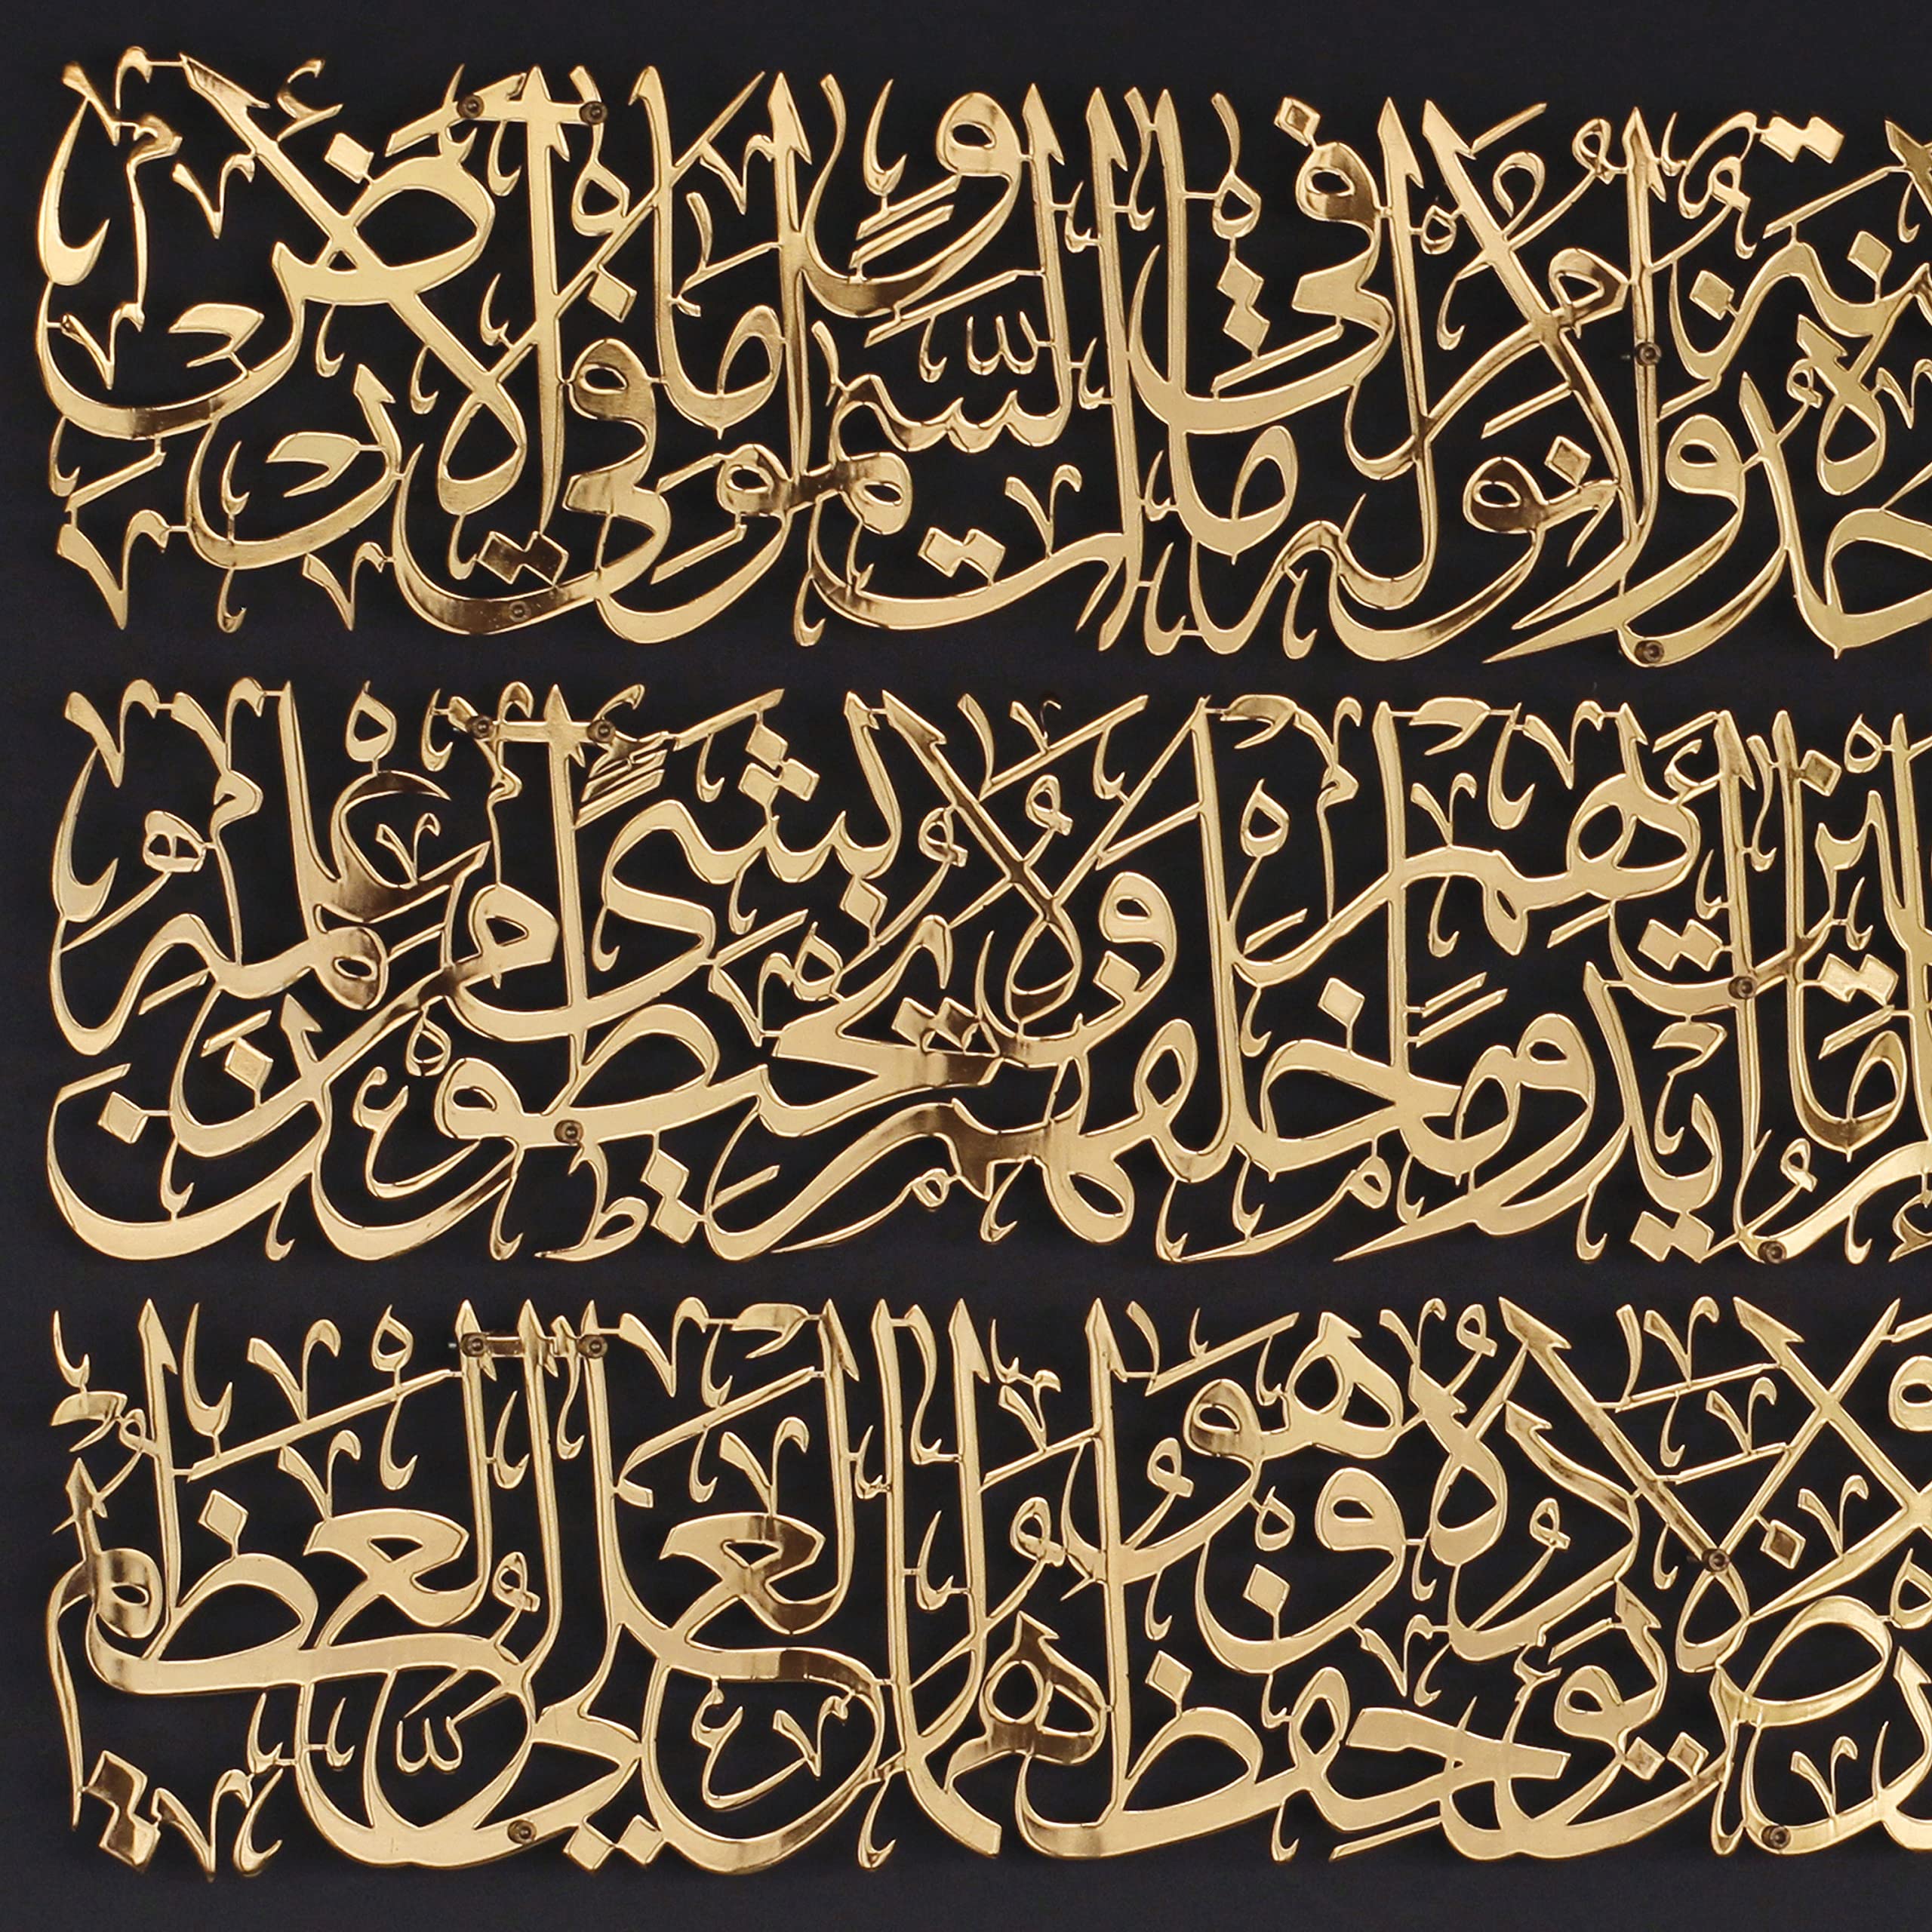 وَلَا نَوْمٌ لَهُ مَا فِي السَّمٰوَاتِ وَمَا فِي الْاَرْضِ
اَيْدِيهِمْ وَمَا خَلْفَهُمْ وَلَا يُحِيطُونَ بِشَيْءٍ مِنْ عِلْمِهِ
وَلَا يَؤُدُهُ حِفْظُهُمَا وَهُوَ الْعَلِيُّ الْعَظِيمُ